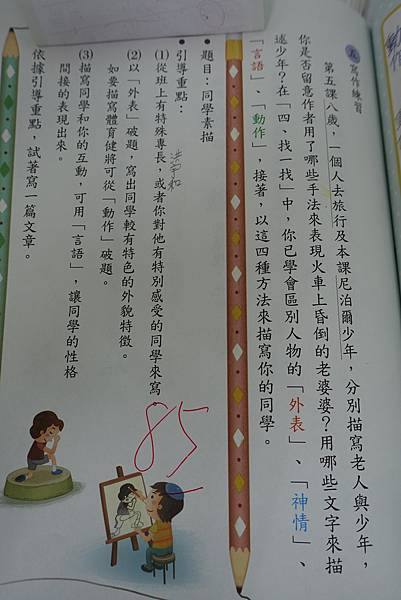 五、寫作練習
第五課八歲，一個人去旅行及本課尼泊爾少年，分別描寫老人與少年，
你是否留意作者用了哪些手法來表現火車上昏倒的老婆婆？用哪些文字來描
述少年？在「四、找一找」中，你已學會區別人物的「外表」、「神情」、
「言語」、「動作」，接著，以這四種方法來描寫你的同學。
• 題目：同學素描
• 引導重點：
(1)從班上有特殊專長，或者你對他有特別感受的同學來寫。
(2)以「外表」破題，寫出同學較有特色的外貌特徵。
如要描寫體育健將可從「動作」破題。
(3)描寫同學和你的互動，可用「言語」，讓同學的性格
間接的表現出來。
依據引導重點，試著寫一篇文章。
85